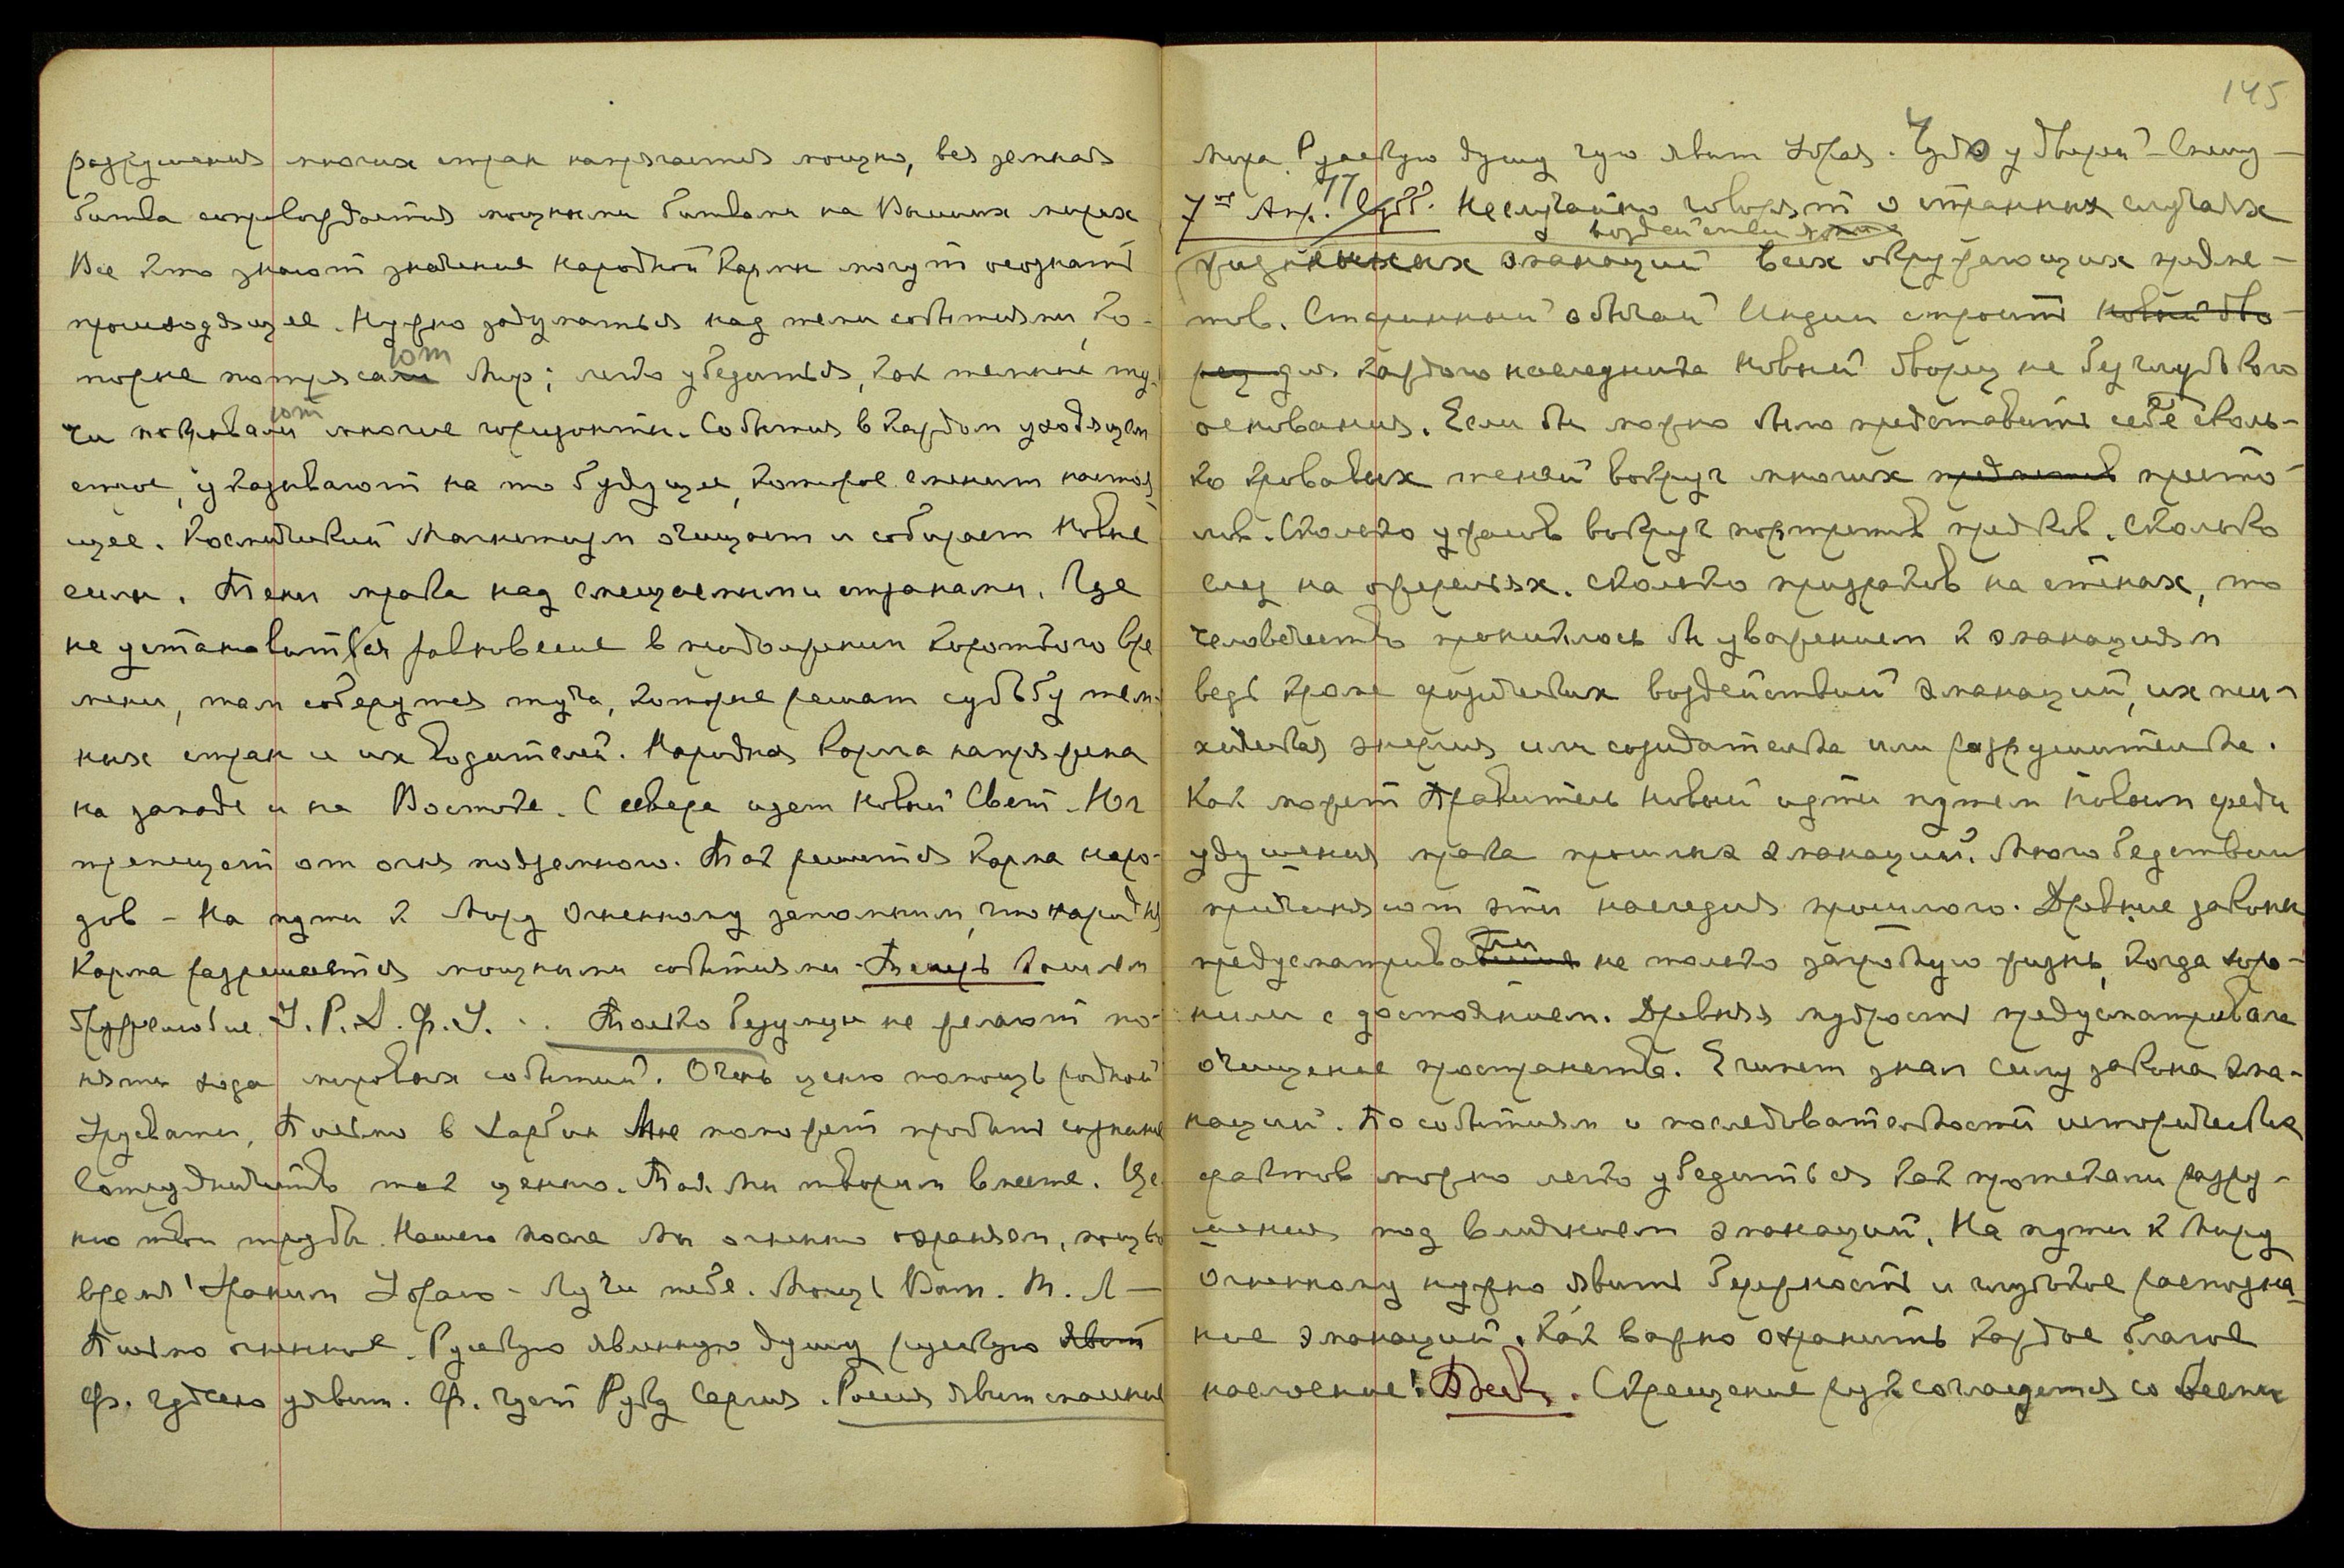 разрушения многих стран напрягается мощно, вся земная
битва сопровождается мощными битвами на Высших мирах
Все кто знают значение народной Кармы могут осознать
происходящее. Нужно задуматься над теми событиями, ко-
торые потрясают Мир; легко убедиться, как темные ту-
чи покрывают многие горизонты. События в каждом уходящем
строе, указывают на то будущее, которое сменит настоя-
щее. Космический Магнетизм очищает и собирает новые
силы. Тени мрака над смещаемыми странами. Где
не установится равновесие в продолжении короткого вре
мени, там соберутся туча, которые решат судьбу тем-
ных стран и их водителей. Народная Карма напряжена
на западе и на Востоке. С севера идет новый Свет. Юг
трепещет от огня подземного. Так решится Карма наро-
дов - На пути к Миру Огненному запомним, что народная
Карма разрешается мощными событиями - Теперь
дружелюбие. У. Р. Д. Ф. У. . . Только безумцы не желают по-
нять хода мировых событий. Очень ценю помощь родной
Урусвати, Письмо в Харбин Мне поможет пробить сознание
Сотрудничество так ценно. Так Мы творим вместе. Це
ню твои труды. Нашего посла Мы огненно охраняем, мощь во
время! Храним Удраю - Лучи тебе. Мощь Вам. М. Л —
Письмо огненное. Русскую явленную душу русскую явит
Ф. чудесно уявит. Ф. чует Руку Сергия. Россия явит спасение
145
мира. Русскую душу чую явит Удрая. Чудо у дверей - Спешу —
7го Апр. 77 Субб. Неслучайно говорят о странных случаях
воздействия
жизненных эманаций всех окружающих предме-
тов. Старинный обычай Индии строить новый дво-
рец для каждого наследника новый дворец не без глубокого
основания. Если бы можно было представить себе сколь-
ко кровавых теней вокруг многих предметов престо-
лов. Сколько ужасов вокруг портретов предков. Сколько
слез на ожерельях. Сколько призраков на стенах, то
человечество прониклось бы уважением к эманациям
ведь кроме физических воздействий эманаций, их пси-
хическая энергия или созидательна или разрушительна.
Как может Правитель новый идти путем новым среди
удушения мрака прошлых эманаций. Много бедствий
причиняют эти наследия прошлого. Древние законы
предусматривали не только загробную жизнь, когда хоро-
нили с достоянием. Древняя мудрость предусматривала
очищение пространства. Египет знал силу закона эма-
наций. По событиям и последовательности исторических
фактов можно легко убедиться как протекали разру-
шения под влиянием эманаций. На пути к Миру
Огненному нужно явить бережность и глубокое распозна-
ние эманаций. Как важно охранить каждое благое
наслоение! Скрещение рук согласуется со всеми